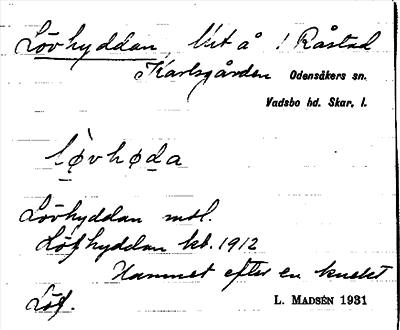 Lövhyddan, Utå i Råstad
Karlsgården Odensåkers sn.
Vadsbo hd. Skar. l.
lø̀vhøda
Lövhyddan msl.
Löfhyddan kb. 1912
Namnet efter en knekt
Löf.
L. MADSÉN 1931